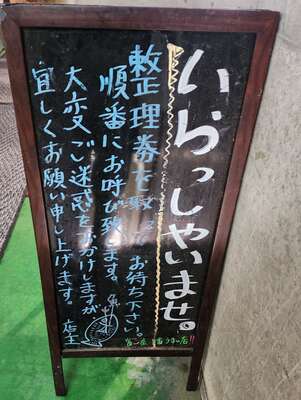 いらっしゃいませ。
整理券を取ってお待ち下さい。
順番にお呼び致します。
大変ご迷惑をおかけしますが
宜しくお願い申し上げます。 店主